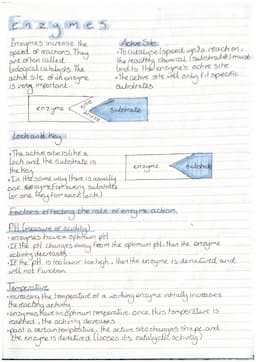 Enzymes
Enzymes increase the
speed of reactions. They
are often called
biological catalysts. The
active site of an enzyme
is very important.
Active Site
• To catalyse (speed up) a reaction,
the reacting chemical (substrate) must
bind to the enzyme's active site
• The active site will only fit specific
substrates
enzyme
active
site
substrate
Lock and Key
• The active site is like a
lock and the substrate is
the key
• In the same way there is usually
one enzyme for every substrate
(or one key for each lock)
enzyme
substrate
Factors effecting the rate of enzyme action.
PH (measure of acidity)
• enzymes have a optimum pH
• If the pH changes away from the optimum pH, then the enzyme
activity decreases
• If the pH is too low or too high, then the enzyme is denatured and
will not function.
Temperature
• increasing the temperature of a working enzyme initially increases
the reacting activity
• enzymes have an optimum temperature. once this temperature is
reached, the activity decreases.
• past a certain temperature, the active site changes shape and
the enzyme is denatured (looses its catalytic activity)